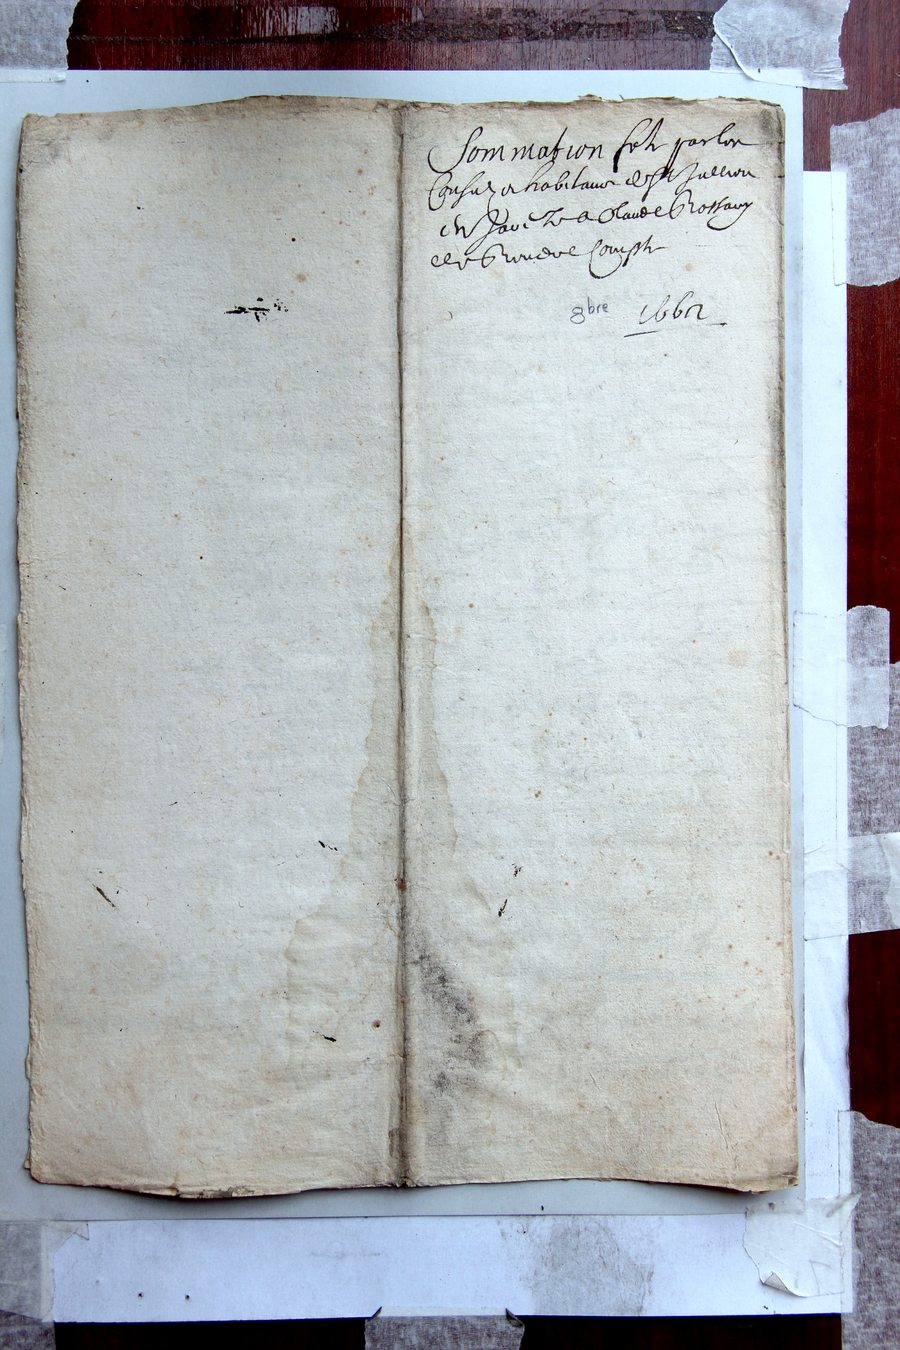 Sommation fete par les
Consulz et habitans de St Jullien
a Claude Rossary
de rendre compte
8bre 1662